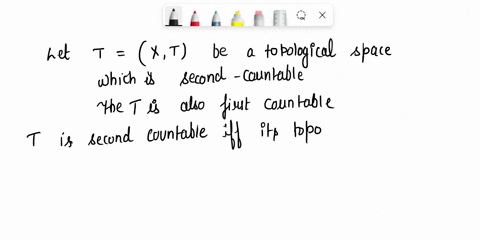 Let T = (X, T) be a topological space
which is second-countable
The T is also first countable
T is second countable iff its topo